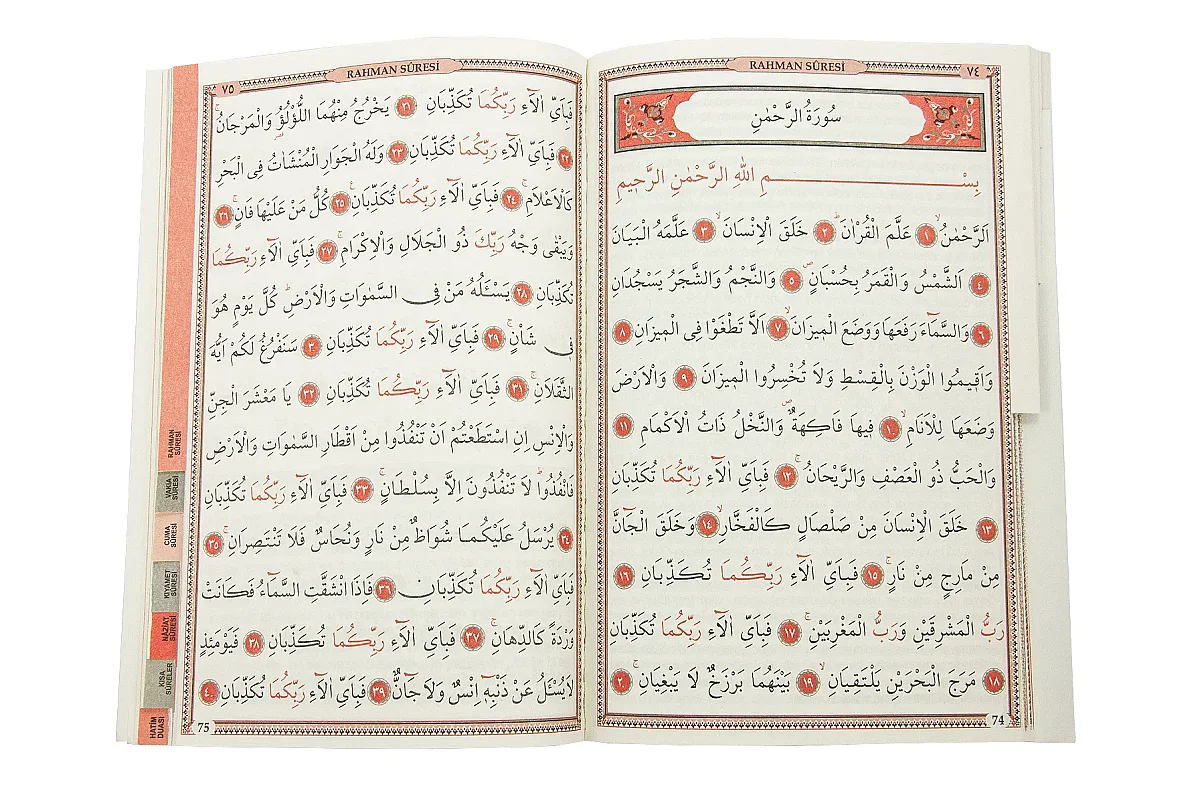 RAHMAN SÛRESİ
٧٤
سُورَةُ الرَّحْمٰنِ
بِسْــــمِ اللهِ الرَّحْمٰنِ الرَّحِيمِ
اَلرَّحْمٰنُۙ ١ عَلَّمَ الْقُرْاٰنَۜ ٢ خَلَقَ الْاِنْسَانَۙ ٣ عَلَّمَهُ الْبَيَانَ
٤ اَلشَّمْسُ وَالْقَمَرُ بِحُسْبَانٍۖ ٥ وَالنَّجْمُ وَالشَّجَرُ يَسْجُدَانِ
٦ وَالسَّمَٓاءَ رَفَعَهَا وَوَضَعَ الْمِيزَانَۙ ٧ اَلَّا تَطْغَوْا فِي الْمِيزَانِ ٨
وَاَقِيمُوا الْوَزْنَ بِالْقِسْطِ وَلَا تُخْسِرُوا الْمِيزَانَ ٩ وَالْاَرْضَ
وَضَعَهَا لِلْاَنَامِۙ ١٠ فِيهَا فَاكِهَةٌۖ وَالنَّخْلُ ذَاتُ الْاَكْمَامِ ١١
وَالْحَبُّ ذُو الْعَصْفِ وَالرَّيْحَانُۚ ١٢ فَبِاَيِّ اٰلَٓاءِ رَبِّكُمَا تُكَذِّبَانِ
١٣ خَلَقَ الْاِنْسَانَ مِنْ صَلْصَالٍ كَالْفَخَّارِۙ ١٤ وَخَلَقَ الْجَٓانَّ
مِنْ مَارِجٍ مِنْ نَارٍۚ ١٥ فَبِاَيِّ اٰلَٓاءِ رَبِّكُمَا تُكَذِّبَانِ ١٦
رَبُّ الْمَشْرِقَيْنِ وَرَبُّ الْمَغْرِبَيْنِۚ ١٧ فَبِاَيِّ اٰلَٓاءِ رَبِّكُمَا تُكَذِّبَانِ
١٨ مَرَجَ الْبَحْرَيْنِ يَلْتَقِيَانِۙ ١٩ بَيْنَهُمَا بَرْزَخٌ لَا يَبْغِيَانِۚ ٢٠
74
RAHMAN SÛRESİ
٧٥
فَبِاَيِّ اٰلَٓاءِ رَبِّكُمَا تُكَذِّبَانِ ٢١ يَخْرُجُ مِنْهُمَا اللُّؤْلُؤُ وَالْمَرْجَانُۚ
٢٢ فَبِاَيِّ اٰلَٓاءِ رَبِّكُمَا تُكَذِّبَانِ ٢٣ وَلَهُ الْجَوَارِ الْمُنْشَاٰتُ فِي الْبَحْرِ
كَالْاَعْلَامِۚ ٢٤ فَبِاَيِّ اٰلَٓاءِ رَبِّكُمَا تُكَذِّبَانِ۟ ٢٥ كُلُّ مَنْ عَلَيْهَا فَانٍۚ ٢٦
وَيَبْقٰى وَجْهُ رَبِّكَ ذُو الْجَلَالِ وَالْاِكْرَامِۚ ٢٧ فَبِاَيِّ اٰلَٓاءِ رَبِّكُمَا
تُكَذِّبَانِ ٢٨ يَسْـَٔلُهُ مَنْ فِي السَّمٰوَاتِ وَالْاَرْضِۜ كُلَّ يَوْمٍ هُوَ
فِي شَأْنٍۚ ٢٩ فَبِاَيِّ اٰلَٓاءِ رَبِّكُمَا تُكَذِّبَانِ ٣٠ سَنَفْرُغُ لَكُمْ اَيُّهَ
الثَّقَلَانِۚ ٣١ فَبِاَيِّ اٰلَٓاءِ رَبِّكُمَا تُكَذِّبَانِ ٣٢ يَا مَعْشَرَ الْجِنِّ
وَالْاِنْسِ اِنِ اسْتَطَعْتُمْ اَنْ تَنْفُذُوا مِنْ اَقْطَارِ السَّمٰوَاتِ وَالْاَرْضِ
فَانْفُذُواۜ لَا تَنْفُذُونَ اِلَّا بِسُلْطَانٍۚ ٣٣ فَبِاَيِّ اٰلَٓاءِ رَبِّكُمَا تُكَذِّبَانِ
٣٤ يُرْسَلُ عَلَيْكُمَا شُوَاظٌ مِنْ نَارٍ وَنُحَاسٌ فَلَا تَنْتَصِرَانِۚ ٣٥
فَبِاَيِّ اٰلَٓاءِ رَبِّكُمَا تُكَذِّبَانِ ٣٦ فَاِذَا انْشَقَّتِ السَّمَٓاءُ فَكَانَتْ
وَرْدَةً كَالدِّهَانِۚ ٣٧ فَبِاَيِّ اٰلَٓاءِ رَبِّكُمَا تُكَذِّبَانِ ٣٨ فَيَوْمَئِذٍ
لَا يُسْـَٔلُ عَنْ ذَنْبِهٖٓ اِنْسٌ وَلَا جَٓانٌّۚ ٣٩ فَبِاَيِّ اٰلَٓاءِ رَبِّكُمَا تُكَذِّبَانِ ٤٠
75
RAHMAN SÛRESİ
VAKIA SÛRESİ
CUMA SÛRESİ
KIYAMET SÛRESİ
NÂZİAT SÛRESİ
KISA SÛRELER
HATİM DUASI